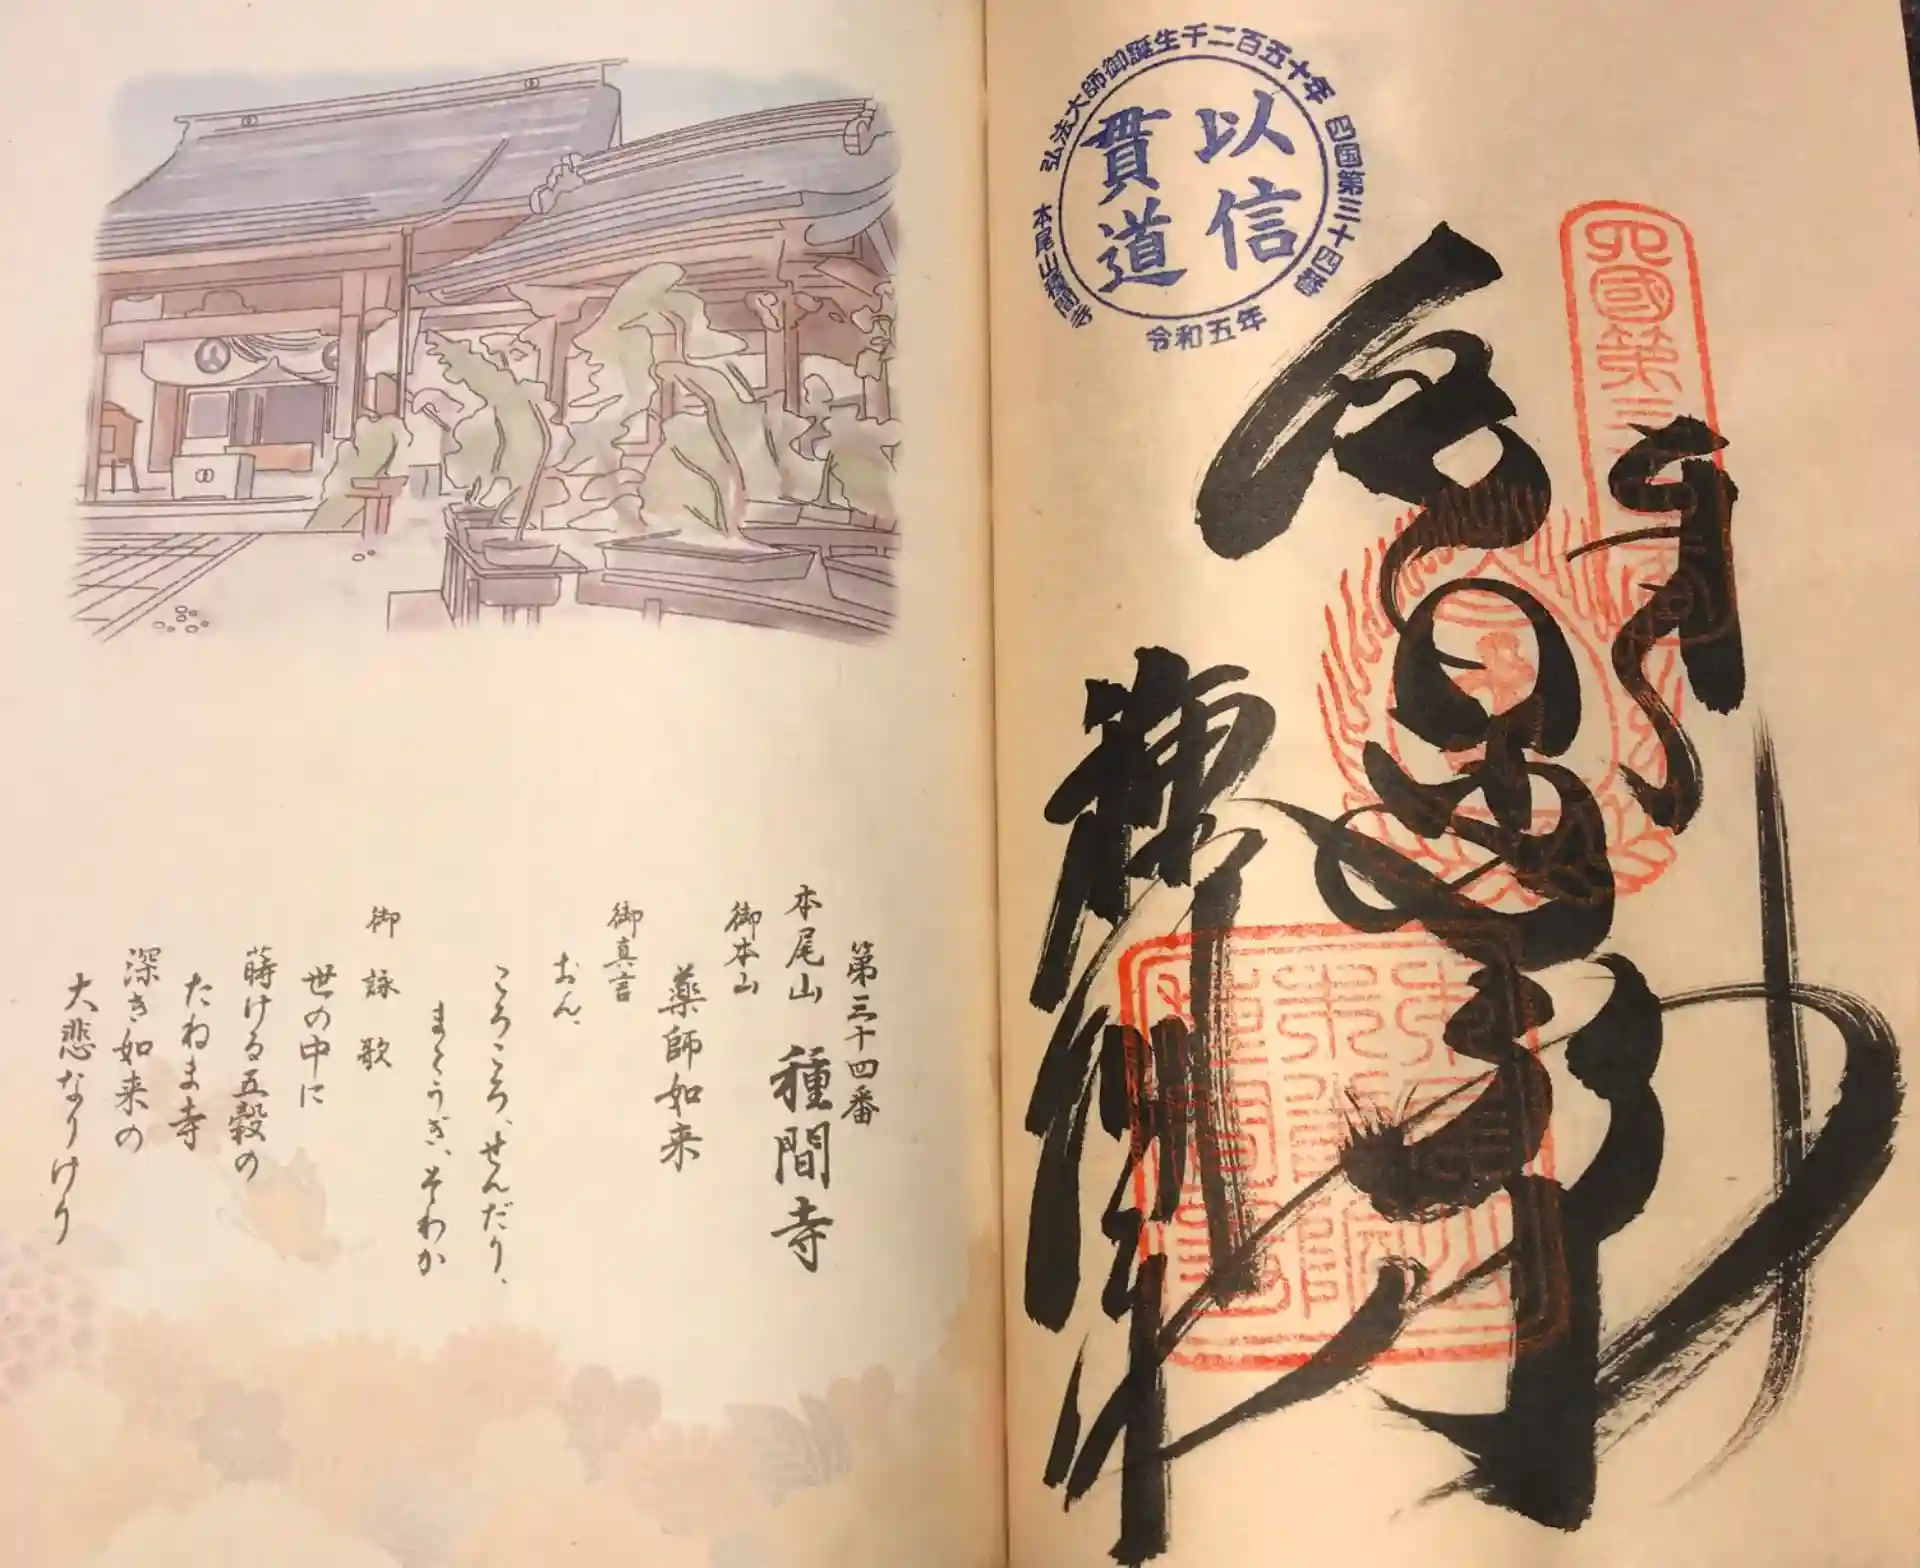 第三十四番
本尾山 種間寺
御本山
薬師如来
御真言
おん、
ころころ、せんだり、
まとうぎ、そわか
御詠歌
世の中に
蒔ける五穀の
たねま寺
深き如来の
大悲なりけり
弘法大師御誕生千二百五十年 四国第三十四番
以信
貫道
本尾山種間寺
令和五年
四國第三
種間寺